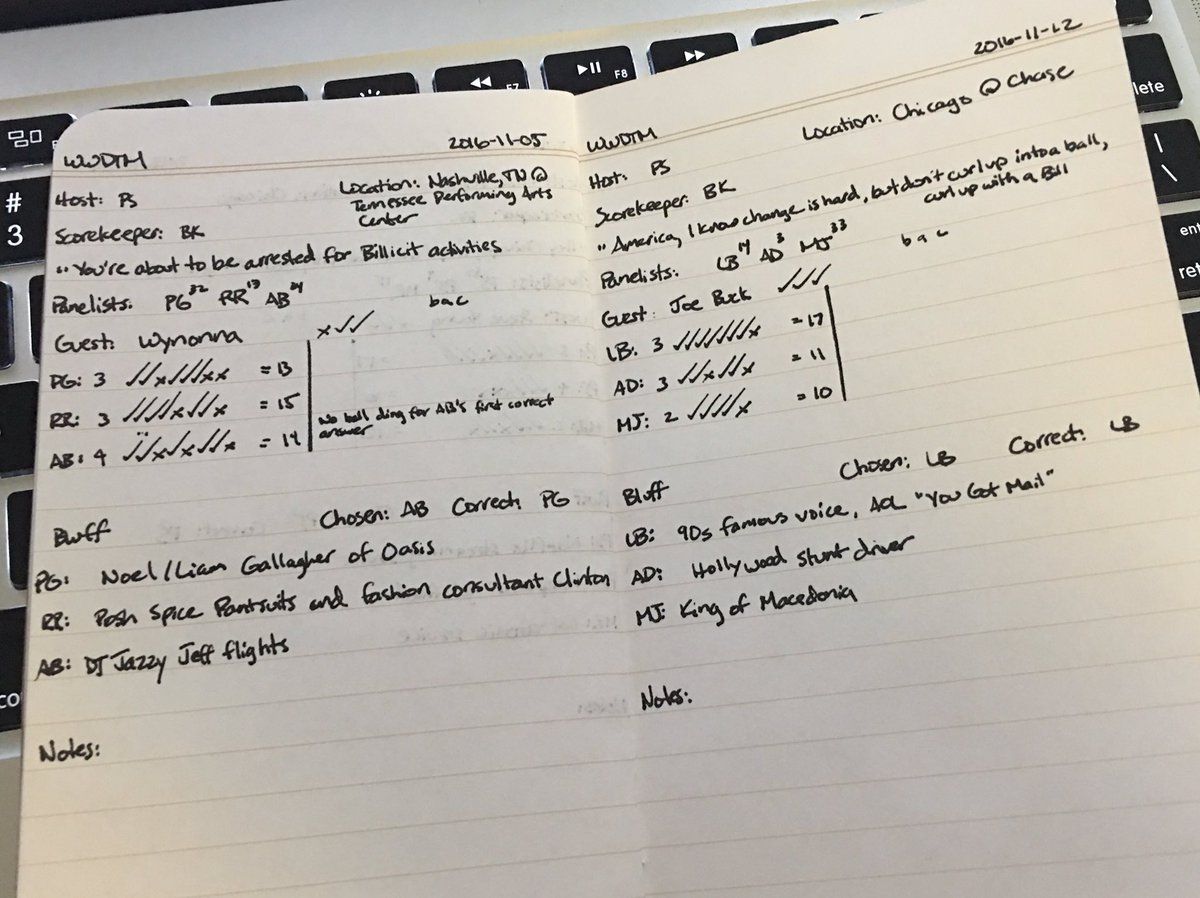 F7
F8
lete
#
3
|
\
ent
ret
co
WWDTM 2016-11-05
Host: PS Location: Nashville, TN @
Tennessee Performing Arts
Center
Scorekeeper: BK
"You're about to be arrested for Billicit activities
Panelists: PG32 RR13 AB24 bac
Guest: Wynonna x✓✓
PG: 3 ✓✓x✓✓✓xx = 13
RR: 3 ✓✓✓✓x✓✓x = 15
No bell ding for AB's first correct
answer
AB: 4 ✓✓x✓x✓✓x = 14
Bluff Chosen: AB Correct: PG
PG: Noel/Liam Gallagher of Oasis
RR: Posh Spice Pantsuits and fashion consultant Clinton
AB: DJ Jazzy Jeff flights
Notes:
WWDTM 2016-11-12
Host: PS Location: Chicago @ Chase
Scorekeeper: BK
"America, I know change is hard, but don't curl up into a ball,
curl up with a Bill
Panelists: LB14 AD3 MJ33 bac
Guest: Joe Buck ✓✓✓
LB: 3 ✓✓✓✓✓✓✓x = 17
AD: 3 ✓✓x✓✓x = 11
MJ: 2 ✓✓✓✓x = 10
Bluff Chosen: LB Correct: LB
LB: 90s famous voice, AOL "You Got Mail"
AD: Hollywood stunt driver
MJ: King of Macedonia
Notes: